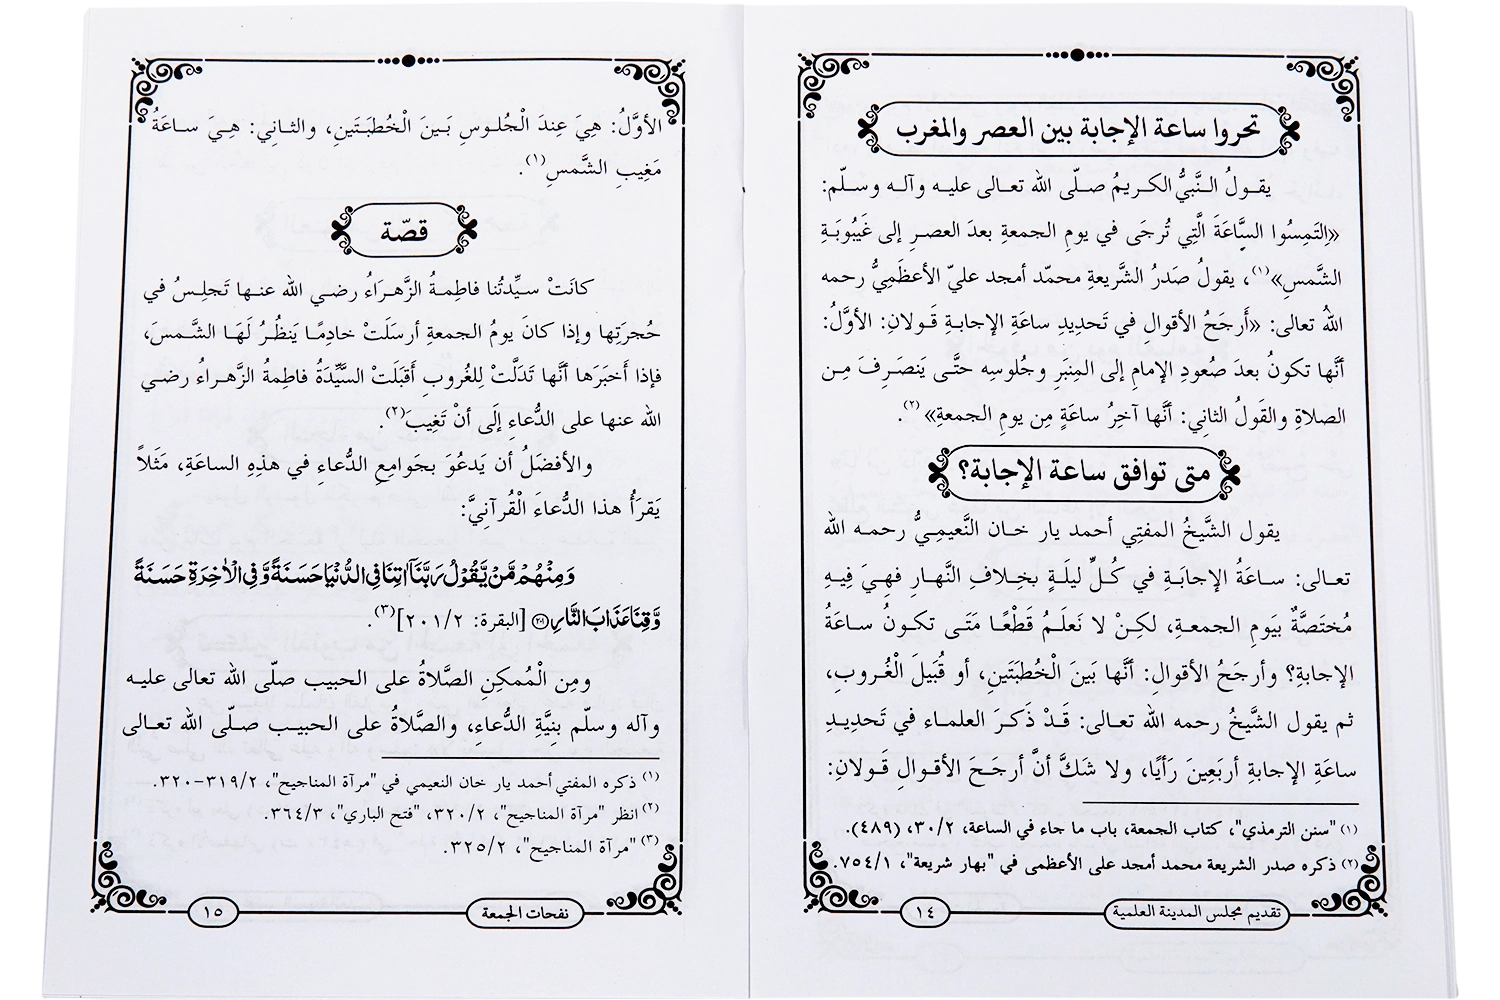 تحروا ساعة الإجابة بين العصر والمغرب
يقولُ النَّبيُّ الكريمُ صلّى الله تعالى عليه وآله وسلّم:
«اِلتَمِسُوا السَّاعَةَ الَّتِي تُرجَى في يومِ الجمعةِ بعدَ العصرِ إلى غَيْبُوبَةِ
الشَّمسِ»(١)، يقولُ صَدرُ الشَّريعةِ محمّد أمجد عليّ الأعظَمِيُّ رحمه
اللهُ تعالى: «أَرجَحُ الأقوالِ في تَحدِيدِ ساعَةِ الإجابةِ قَولانِ: الأوَّلُ:
أنَّها تكونُ بعدَ صُعودِ الإمامِ إلى المِنبَرِ وجُلوسِه حتَّى يَنصَرِفَ مِن
الصلاةِ والقَولُ الثانِي: أنَّها آخِرُ ساعَةٍ مِن يومِ الجمعةِ» (٢).
متى توافق ساعة الإجابة؟
يقول الشَّيخُ المفتِي أحمد يار خان النَّعيمِيُّ رحمه الله
تعالى: ساعَةُ الإجابَةِ في كُلِّ ليلَةٍ بخِلافِ النَّهارِ فهِيَ فِيهِ
مُختَصَّةٌ بيَومِ الجمعةِ، لكِنْ لا نَعلَمُ قَطْعًا مَتَى تكونُ ساعَةُ
الإجابةِ؟ وأرجَحُ الأقوالِ: أنَّها بَينَ الْخُطبَتَينِ، أو قُبَيلَ الْغُروبِ،
ثم يقول الشَّيخُ رحمه الله تعالى: قَدْ ذَكَرَ العلماء في تَحدِيدِ
ساعَةِ الإجابةِ أربَعِينَ رَأيًا، ولا شَكَّ أنَّ أرجَحَ الأقوالِ قَولانِ:
(١) "سنن الترمذي"، كتاب الجمعة، باب ما جاء في الساعة، ٣٠/٢، (٤٨٩).
(٢) ذكره صدر الشريعة محمد أمجد على الأعظمى في "بهار شريعة"، ٧٥٤/١.
تقديم مجلس المدينة العلمية
١٤
الأوَّلُ: هيَ عِندَ الْجُلوسِ بَينَ الْخُطبَتَينِ، والثانِي: هِيَ ساعَةُ
مَغِيبِ الشَّمسِ(١).
قصّة
كانَتْ سيِّدتُنا فاطِمةُ الزَّهراءُ رضي الله عنها تَجلِسُ في
حُجرَتِها وإذا كانَ يومُ الجمعةِ أرسلَتْ خادِمًا يَنظُرُ لَهَا الشَّمسَ،
فإذا أَخبَرَها أنَّها تَدَلَّتْ لِلغُروبِ أَقبَلَتْ السَّيِّدَةُ فاطِمةُ الزَّهراء رضي
الله عنها على الدُّعاءِ إلَى أنْ تَغِيبَ(٢).
والأفضَلُ أن يَدعُوَ بجَوامِعِ الدُّعاءِ في هذِهِ الساعَةِ، مَثَلاً
يَقرَأُ هذا الدُّعاءَ الْقُرآنِيَّ:
وَمِنْهُمْ مَّنْ يَّقُوْلُ رَبَّنَاۤ اٰتِنَا فِي الدُّنْيَا حَسَنَةً وَّفِي الْاٰخِرَةِ حَسَنَةً
وَّقِنَا عَذَابَ النَّارِ ﴿۲۰۱﴾ [البقرة: ٢٠١/٢](٣).
ومِن الْمُمكِنِ الصَّلاةُ على الحبيب صلّى الله تعالى عليه
وآله وسلّم بنِيَّةِ الدُّعاءِ، والصَّلاةُ على الحبيب صلّى الله تعالى
(١) ذكره المفتي أحمد يار خان النعيمي في "مرآة المناجيح"، ٣١٩/٢-٣٢٠.
(٢) انظر "مرآة المناجيح"، ٣٢٠/٢، "فتح الباري"، ٣٦٤/٣.
(٣) "مرآة المناجيح"، ٣٢٥/٢.
نفحات الجمعة
١٥